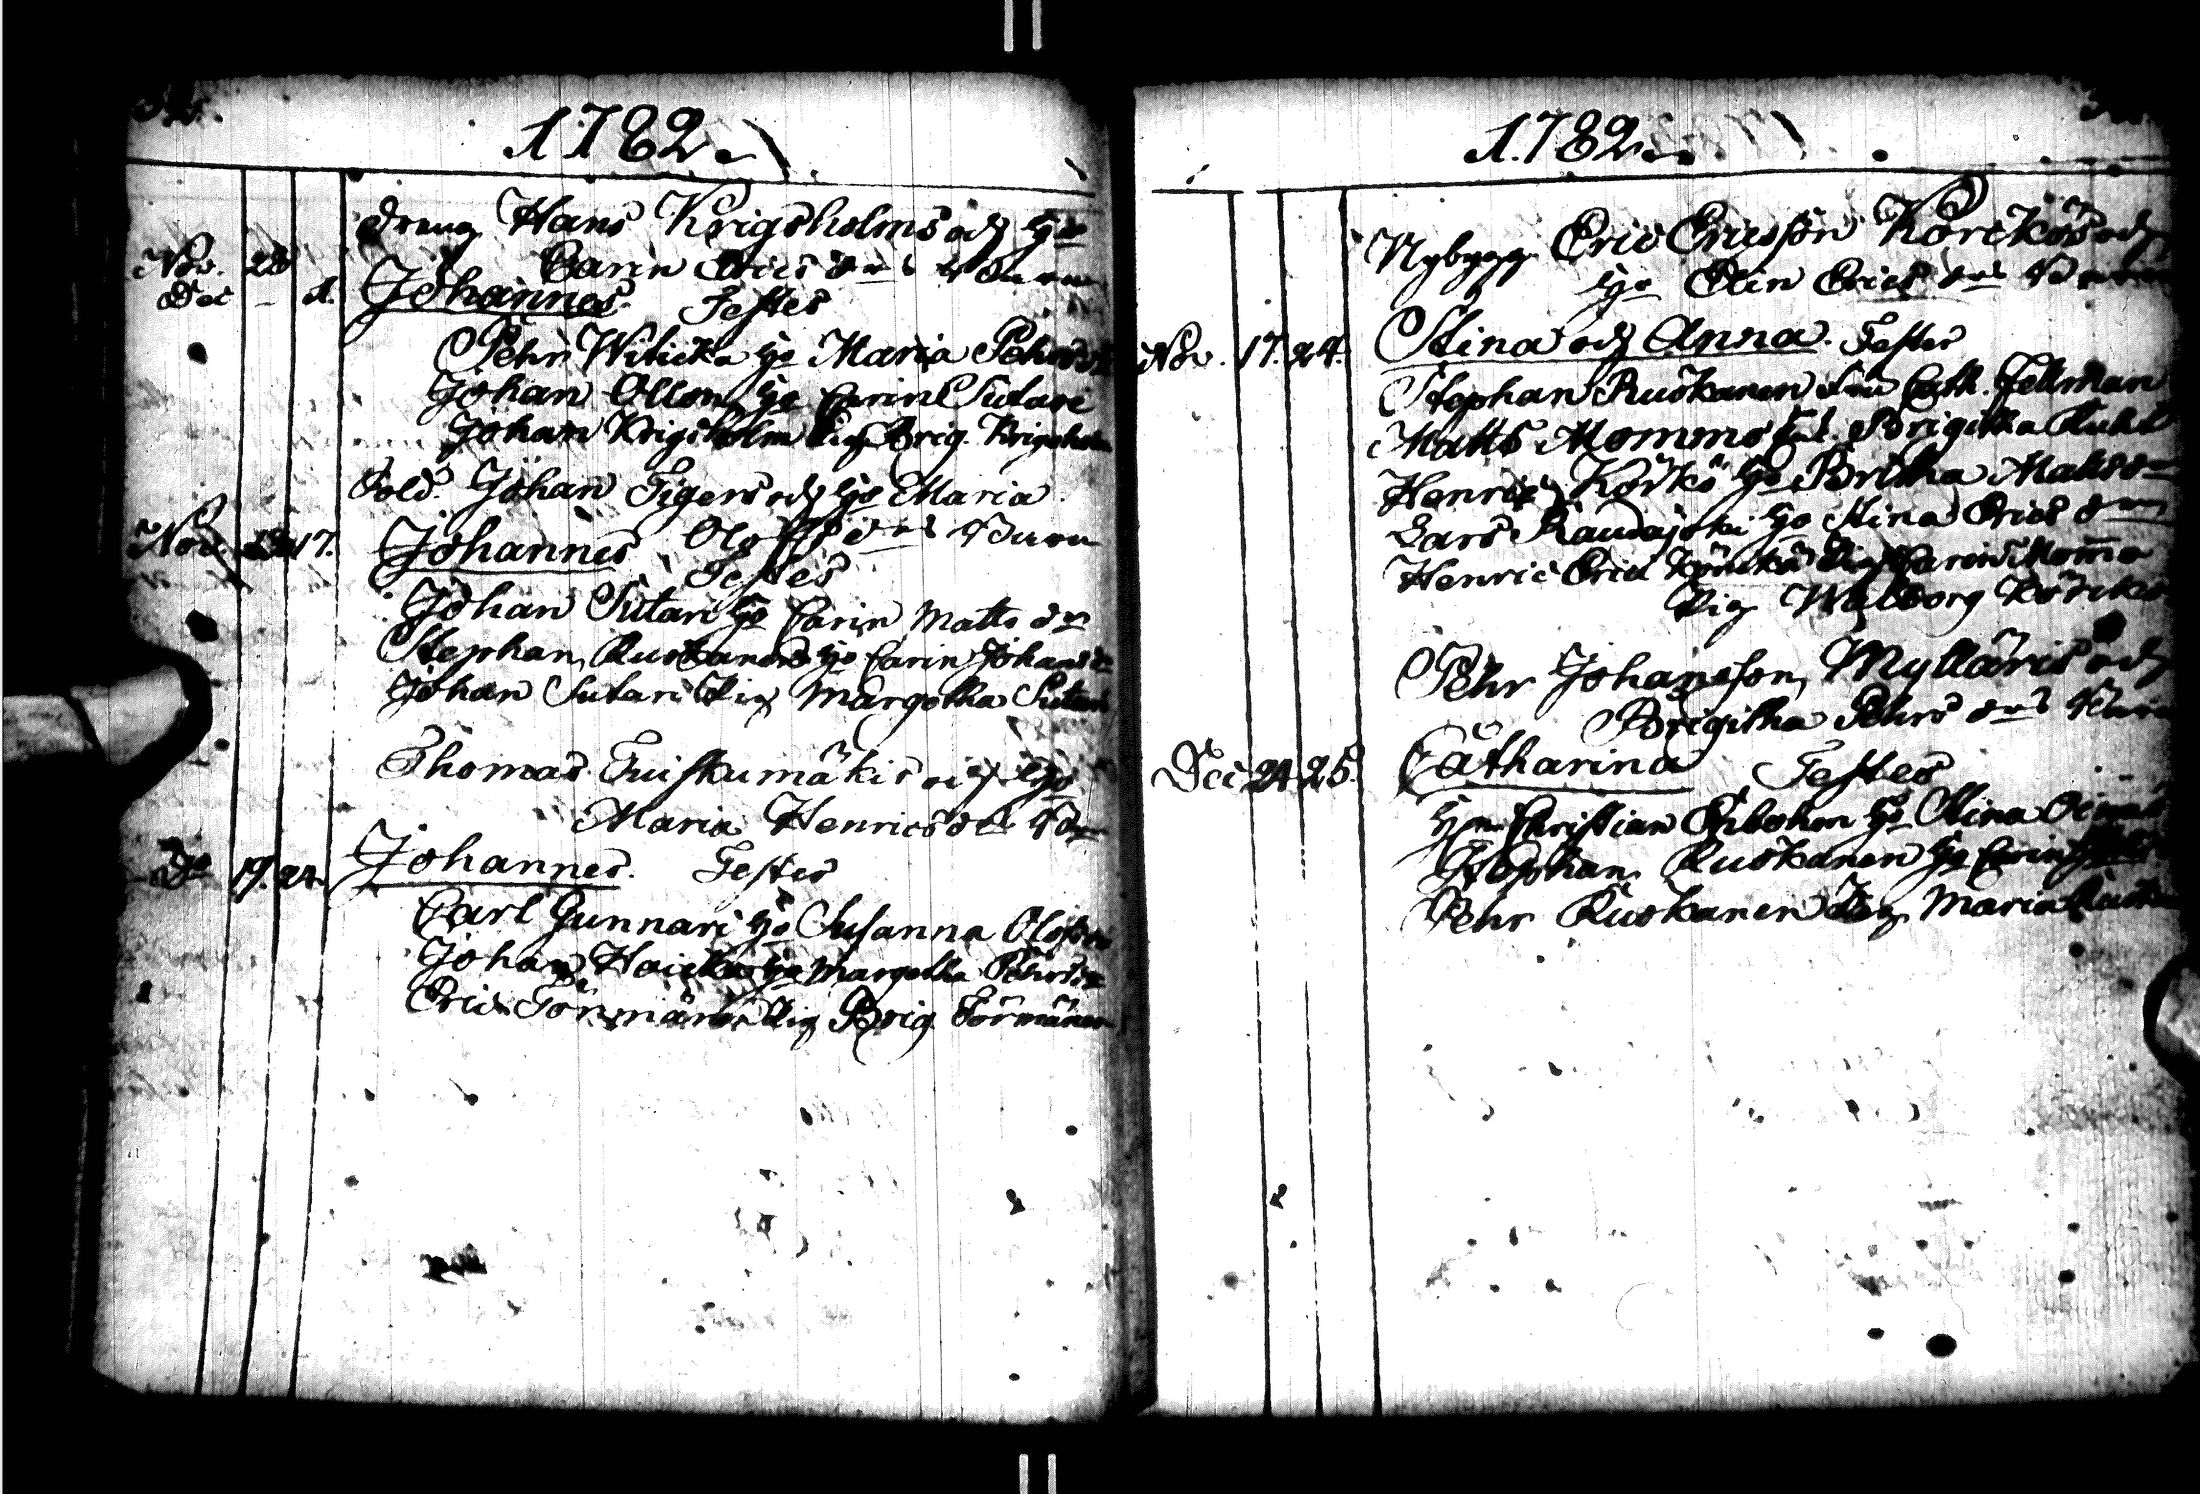 1782.
Dreng Hans Krigsholms och Ho
Nov. 28 Carin Erics dns Barn
Dec - 1. Johannes. Testes
Pehr Witicka Ho Maria Pehrsdr
Johan Ollon Ho Carin Sutari
Johan Krigsholm Pig Brig. Krigsholm
Sold. Johan Tigers och Ho Maria
Olofsdns Barn
Nov. 17. Johannes Testes
Johan Sutari Ho Carin Matts dr
Stephan Ruokanen Ho Carin Johansdr
Johan Sutari Pig Margetha Sutari
Thomas Tuiskumäkis och Ho
Maria Henricsdr Bn
Do 19. 24. Johannes. Testes
Carl Gunnari Ho Susanna Olofsdr
Johan Haicka Ho Margetha Pehrsdr
Eric Törmänen Pig Brig Törmänen
1782.
Nybygg. Eric Ericsson Körckös och
Ho Elin Erics dns Barn
Nov. 17. 24. Stina och Anna. Testes
Stephan Ruokanen Fru Cath. Fellman
Matts Mommo Brigitha
Henric Körkö Ho Britha Mattsdr
Lars Raudajoki Ho Stina Erics dr
Henric Eric Körckö Pig Carin Momo
Pig Walborg Körckö
Pehr Johansson Mylläris och
Brigitha Pehrs dns Barn
Dec 24 25. Catharina Testes
Christian Ho Stina
Stephan Ruokanen Ho Carin
Pehr Ruokanen Pig Maria